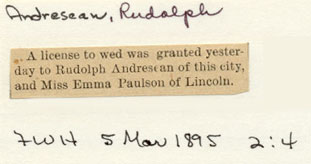 Andresean, Rudolph
A license to wed was granted yester-
day to Rudolph Andresean of this city,
and Miss Emma Paulson of Lincoln.
FWH 5 Mar 1895 2:4